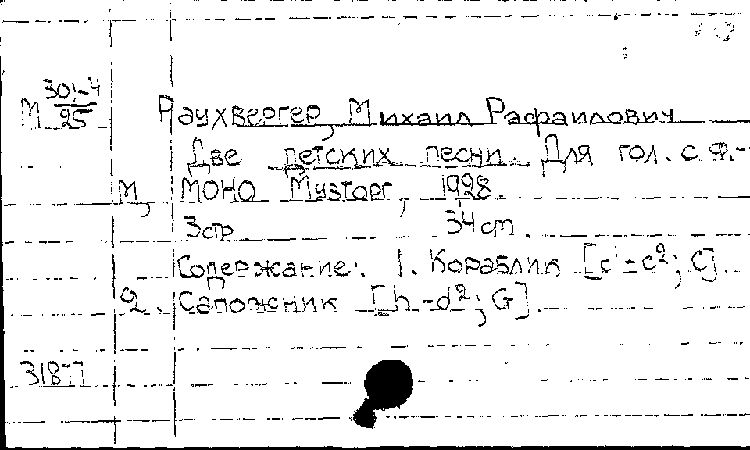 М 301-4/25
Раухвергер, Михаил Рафаилович
Две детских песни. Для гол. с ф.-
М, МОНО Музторг, 1928.
3стр 34 ст.
Содержание: 1. Кораблик [c'-c²; C].
2. Сапожник [h-d²; G].